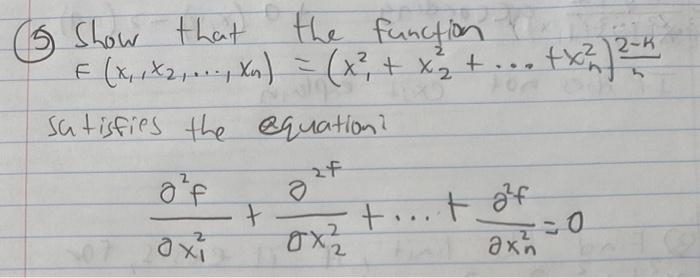 ⑤ Show that the function
F (x₁, x₂, ..., xₙ) = (x₁² + x₂² + ... + xₙ²)^((2-n)/n)
satisfies the equation:
∂²f/∂x₁² + ∂²f/∂x₂² + ... + ∂²f/∂xₙ² = 0